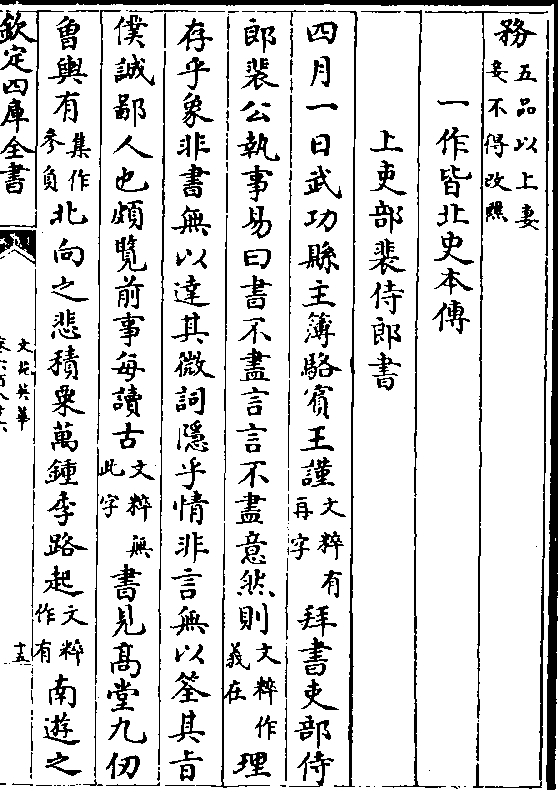 務五品以上妻妾不得改醮
一作皆北史本傳
上吏部裴侍郎書
四月一日武功縣主簿駱賓王謹文粹有再字拜書吏部侍
郎裴公執事易曰書不盡言言不盡意然則文粹作義在理
存乎象非書無以達其微詞隱乎情非言無以筌其旨
僕誠鄙人也頗覽前事每讀古文粹無此字書見髙堂九仞
曾輿有集作參負北向之悲積粟萬鍾季路起文粹作有南遊之
欽定四庫全書
文苑英華
卷六百八十六
十五